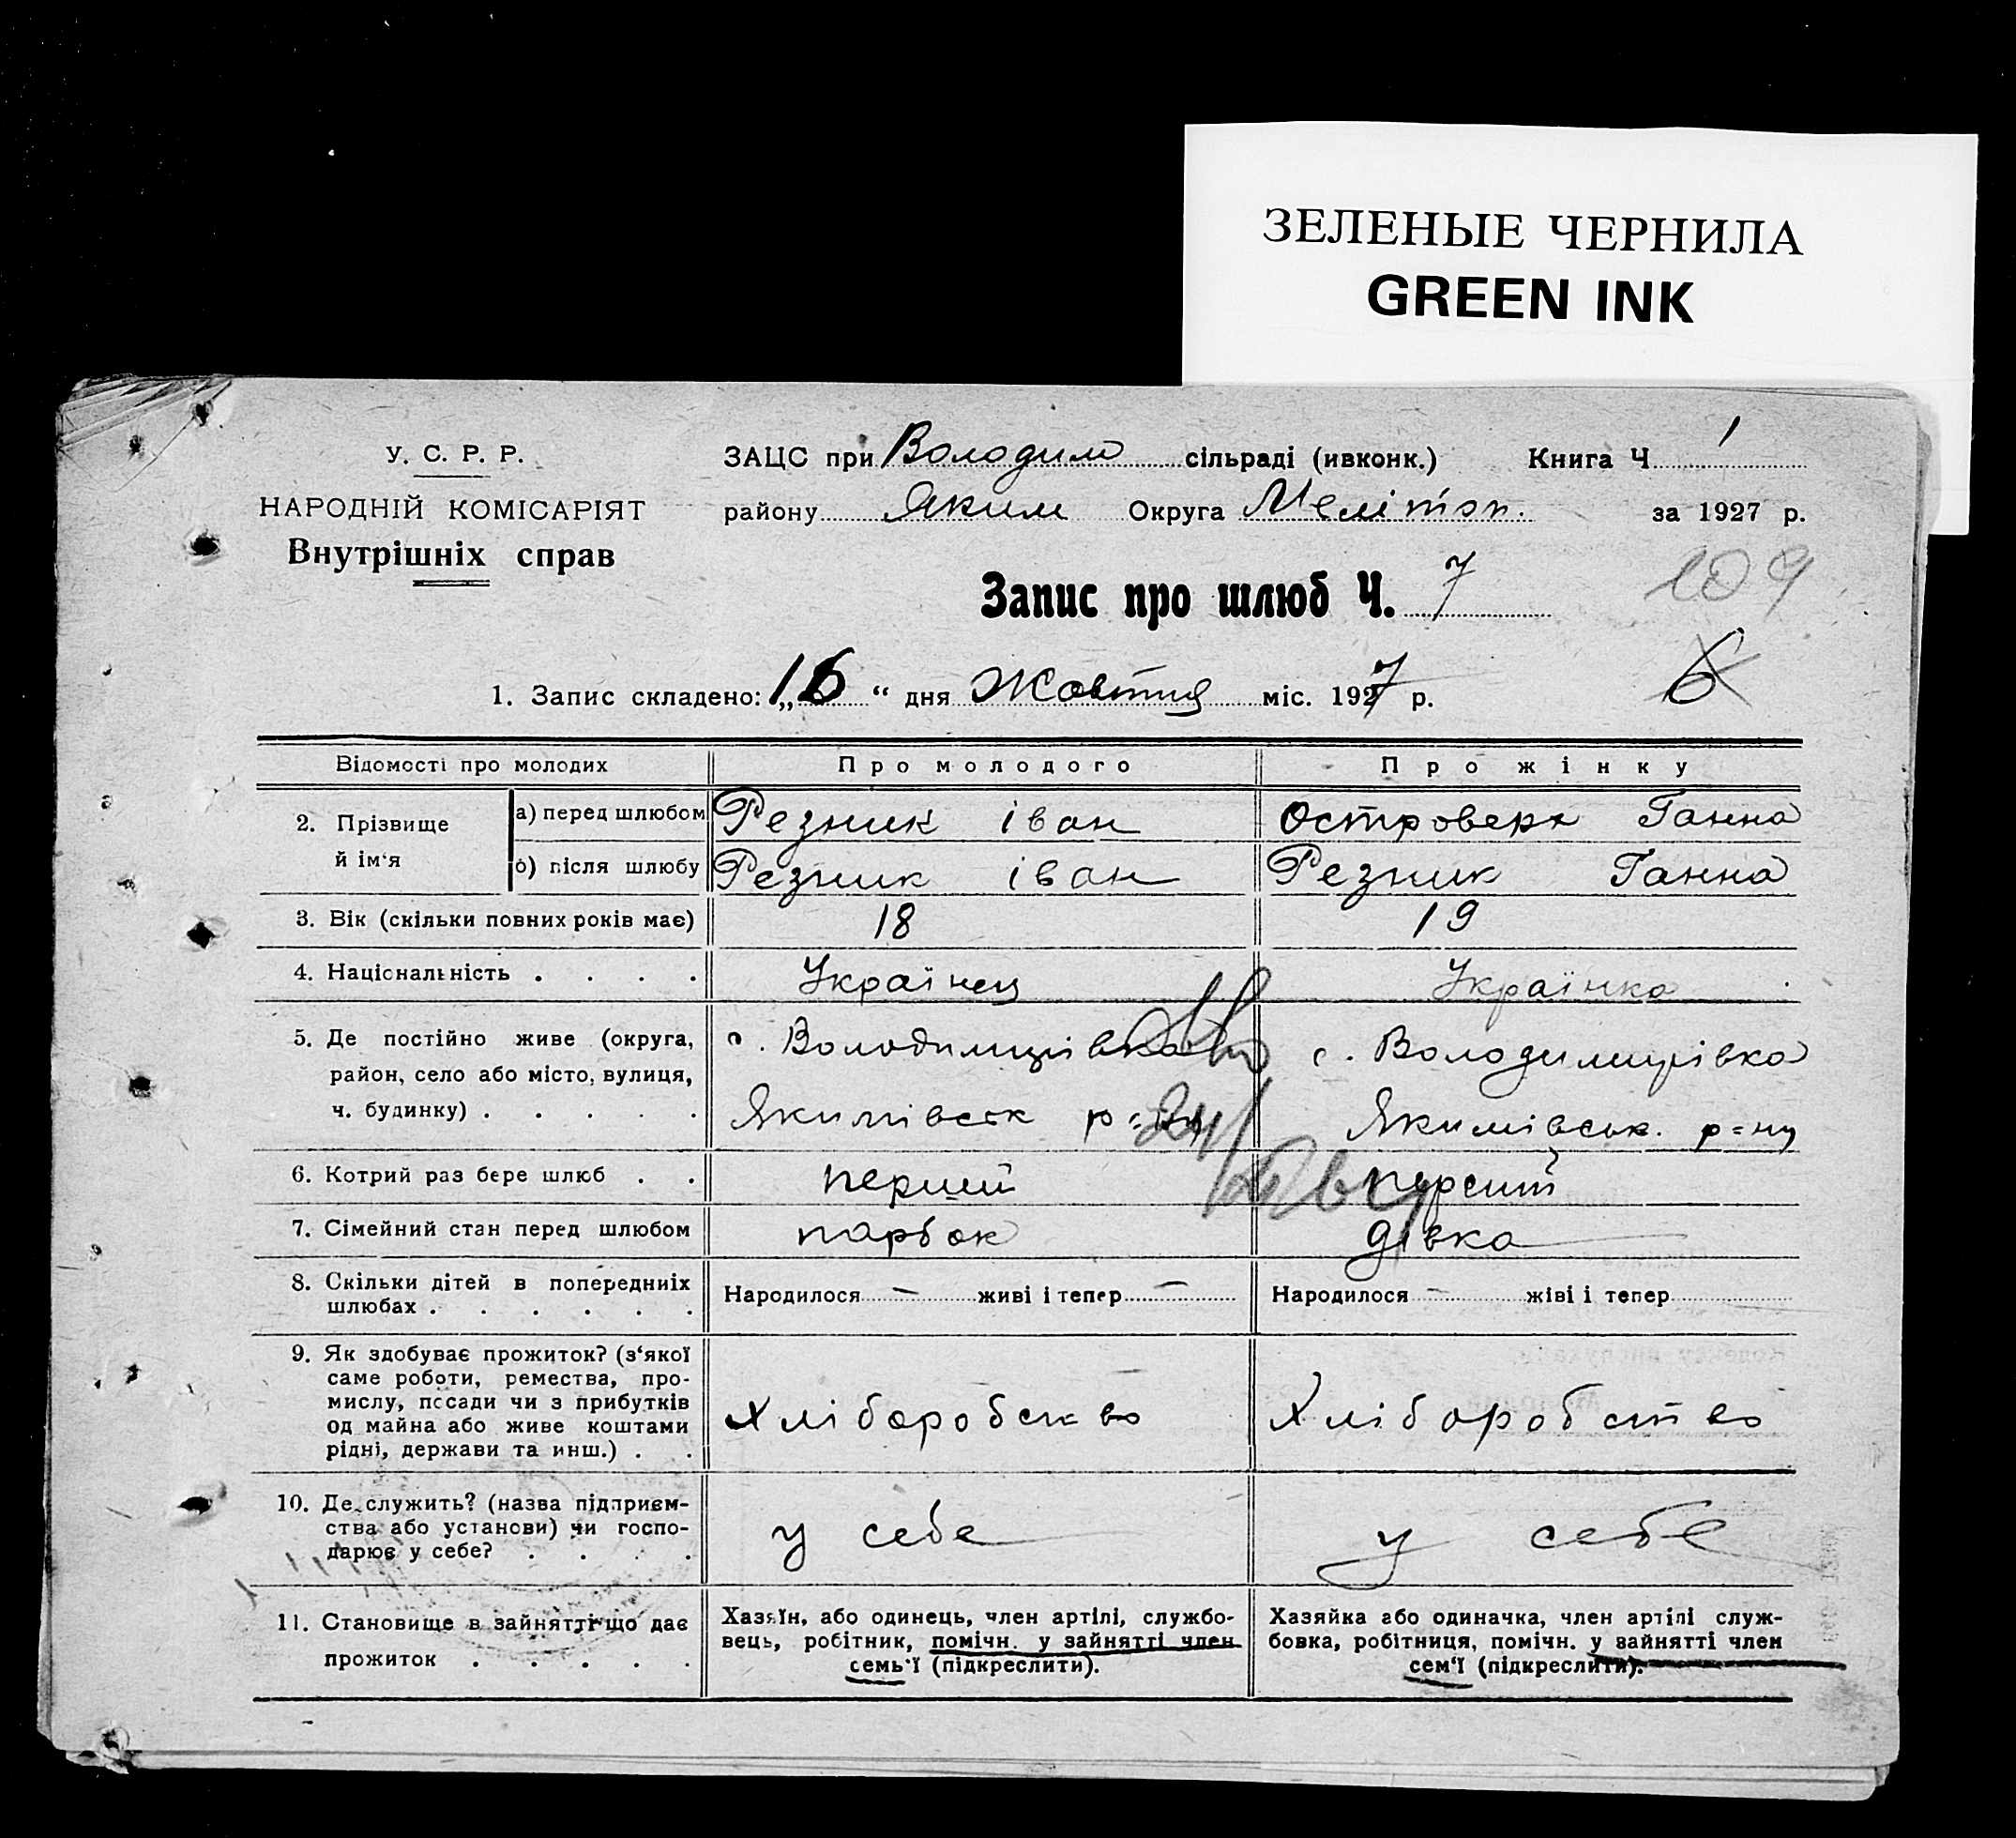 ЗЕЛЕНЫЕ ЧЕРНИЛА
GREEN INK
У. С. Р. Р.
НАРОДНІЙ КОМІСАРІЯТ
Внутрішніх справ
ЗАЦС при Володим сільраді (ивконк.) Книга Ч. 1
району Яким Округа Меліт́оп. за 1927 р.
Запис про шлюб Ч. 7
109
1. Запис складено: „16“ дня Жовтня міс. 1927 р.
6
Відомості про молодих Про молодого Про жінку
2. Прізвище й ім‘я
а) перед шлюбом Резник іван Островерх Ганна
б) після шлюбу Резник іван Резник Ганна
3. Вік (скільки повних років має) 18 19
4. Національність . . . . Українец Українка
5. Де постійно живе (округа, район, село або місто, вулиця, ч. будинку) . . . . .
с. Володимирівка с. Володимирівка
Якимівськ р=ну Якимівськ. р=ну
6. Котрий раз бере шлюб . . перший перший
7. Сімейний стан перед шлюбом парбок дівка
8. Скільки дітей в попередниіх шлюбах . . . . . .
Народилося — живі і тепер — Народилося — жіві і тепер
9. Як здобуває прожиток? (з‘якої
саме роботи, ремества, про-
мислу, посади чи з прибутків
од майна або живе коштами
рідні, держави та инш.) . .
Хліборобство Хліборобство
10. Де служить? (назва підприєм-
ства або установи) чи госпо-
дарює у себе? . . . .
у себе у себе
11. Становище в зайнятті що дає
прожиток . . . . .
Хазяїн, або одинець, член артілі, службо-
вець, робітник, помічн. у зайнятті член
семь‘ї (підкреслити).
Хазяйка або одиначка, член артілі служ-
бовка, робітниця, помічн. у зайнятті член
сем‘ї (підкреслити).